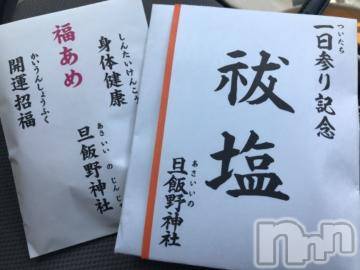 しんたいけんこう
身体健康
福あめ
かいうんしょうふく
開運招福
あさいいの じんじゃ
旦飯野神社
ついたち
一日参り記念
祓塩
あさいいの
旦飯野神社
nnn